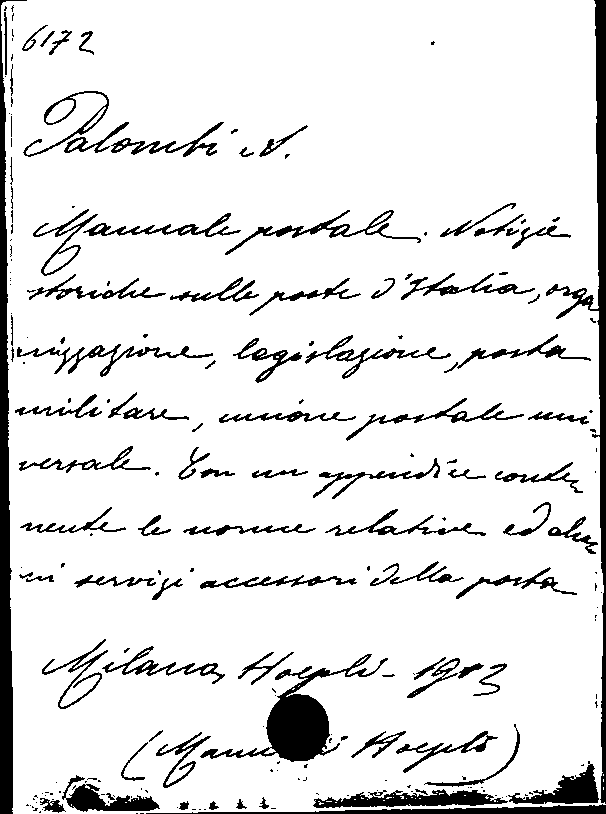 6172
Palombi A.
Manuale postale. Notizie
storiche sulle poste d'Italia, orga-
nizzazione, legislazione, posta
militare, unione postale uni-
versale. Con un appendice conte-
nente le norme relative ed alcu-
ni servizi accessori della posta
Milano, Hoepli - 1903
(Manuali Hoepli)